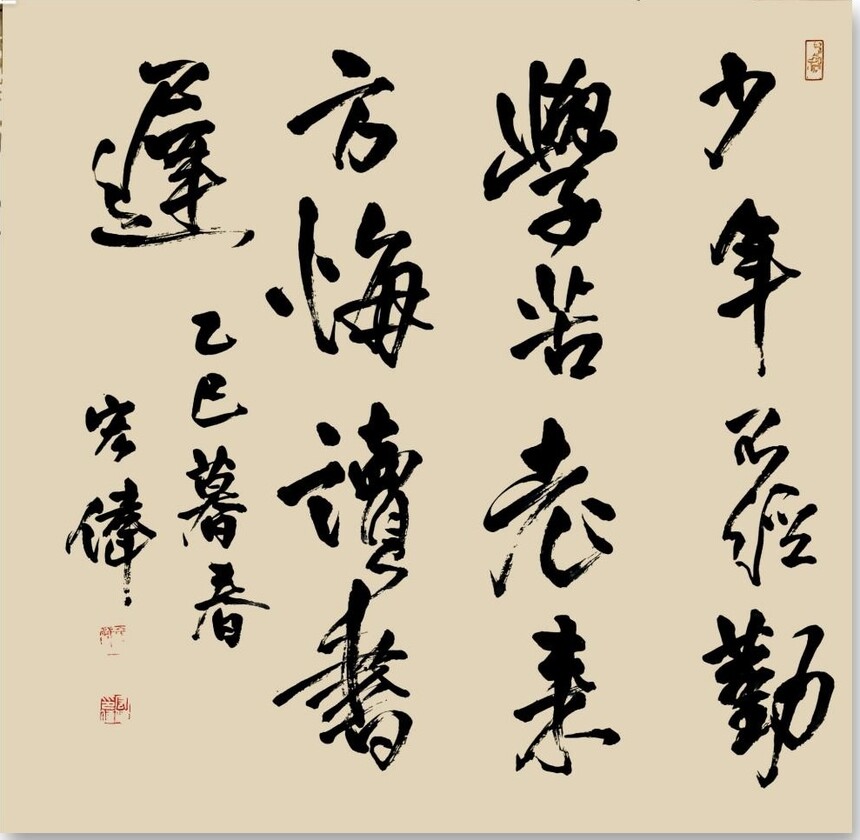 少年不經勤
學苦老来
方悔讀書
遲
乙巳暮春
宏偉